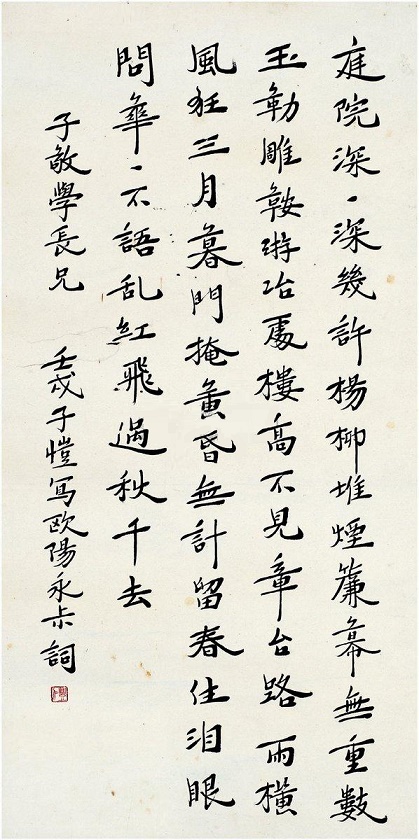 庭院深丶深幾許楊柳堆煙簾幕無重數
玉勒雕鞍游冶處樓高不見章台路雨橫
風狂三月暮門掩黃昏無計留春住泪眼
問華丶不語乱紅飛過秋千去
子敏學長兄 壬戌子愷写欧陽永尗詞